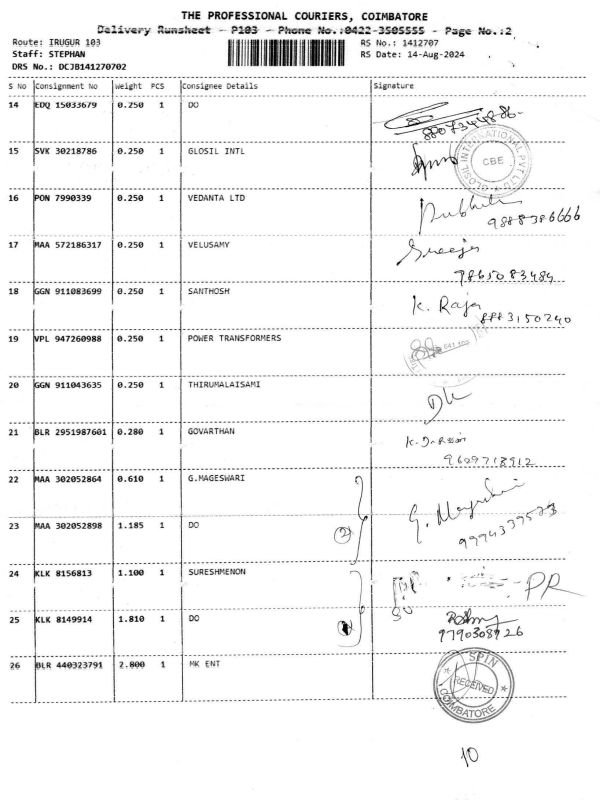 THE PROFESSIONAL COURIERS, COIMBATORE
Delivery Runsheet - P103 - Phone No.:0422-3505555 - Page No.:2
Route: IRUGUR 103 RS No.: 1412707
Staff: STEPHAN RS Date: 14-Aug-2024
DRS No.: DCJB141270702
S No Consignment No Weight PCS Consignee Details Signature
14 EDQ 15033679 0.250 1 DO
15 SVK 30218786 0.250 1 GLOSIL INTL
GLOSIL INTERNATIONAL PVT LTD
CBE
16 PON 7990339 0.250 1 VEDANTA LTD
9888386666
17 MAA 572186317 0.250 1 VELUSAMY
9865083484
18 GGN 911083699 0.250 1 SANTHOSH K. Raja
8883150240
19 VPL 947260988 0.250 1 POWER TRANSFORMERS
20 GGN 911043635 0.250 1 THIRUMALAISAMI
21 BLR 2951987601 0.280 1 GOVARTHAN
9609718912
22 MAA 302052864 0.610 1 G.MAGESWARI
23 MAA 302052898 1.185 1 DO 2
24 KLK 8156813 1.100 1 SURESHMENON PR
25 KLK 8149914 1.810 1 DO
9790308926
26 BLR 440323791 2.800 1 MK ENT
SPIN
RECEIVED
COIMBATORE
10